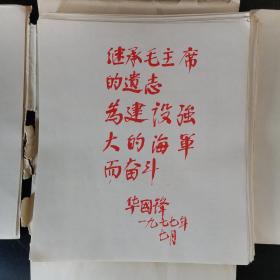 继承毛主席
的遗志
為建设強
大的海軍
而奋斗
华國锋
一九七七年
七月